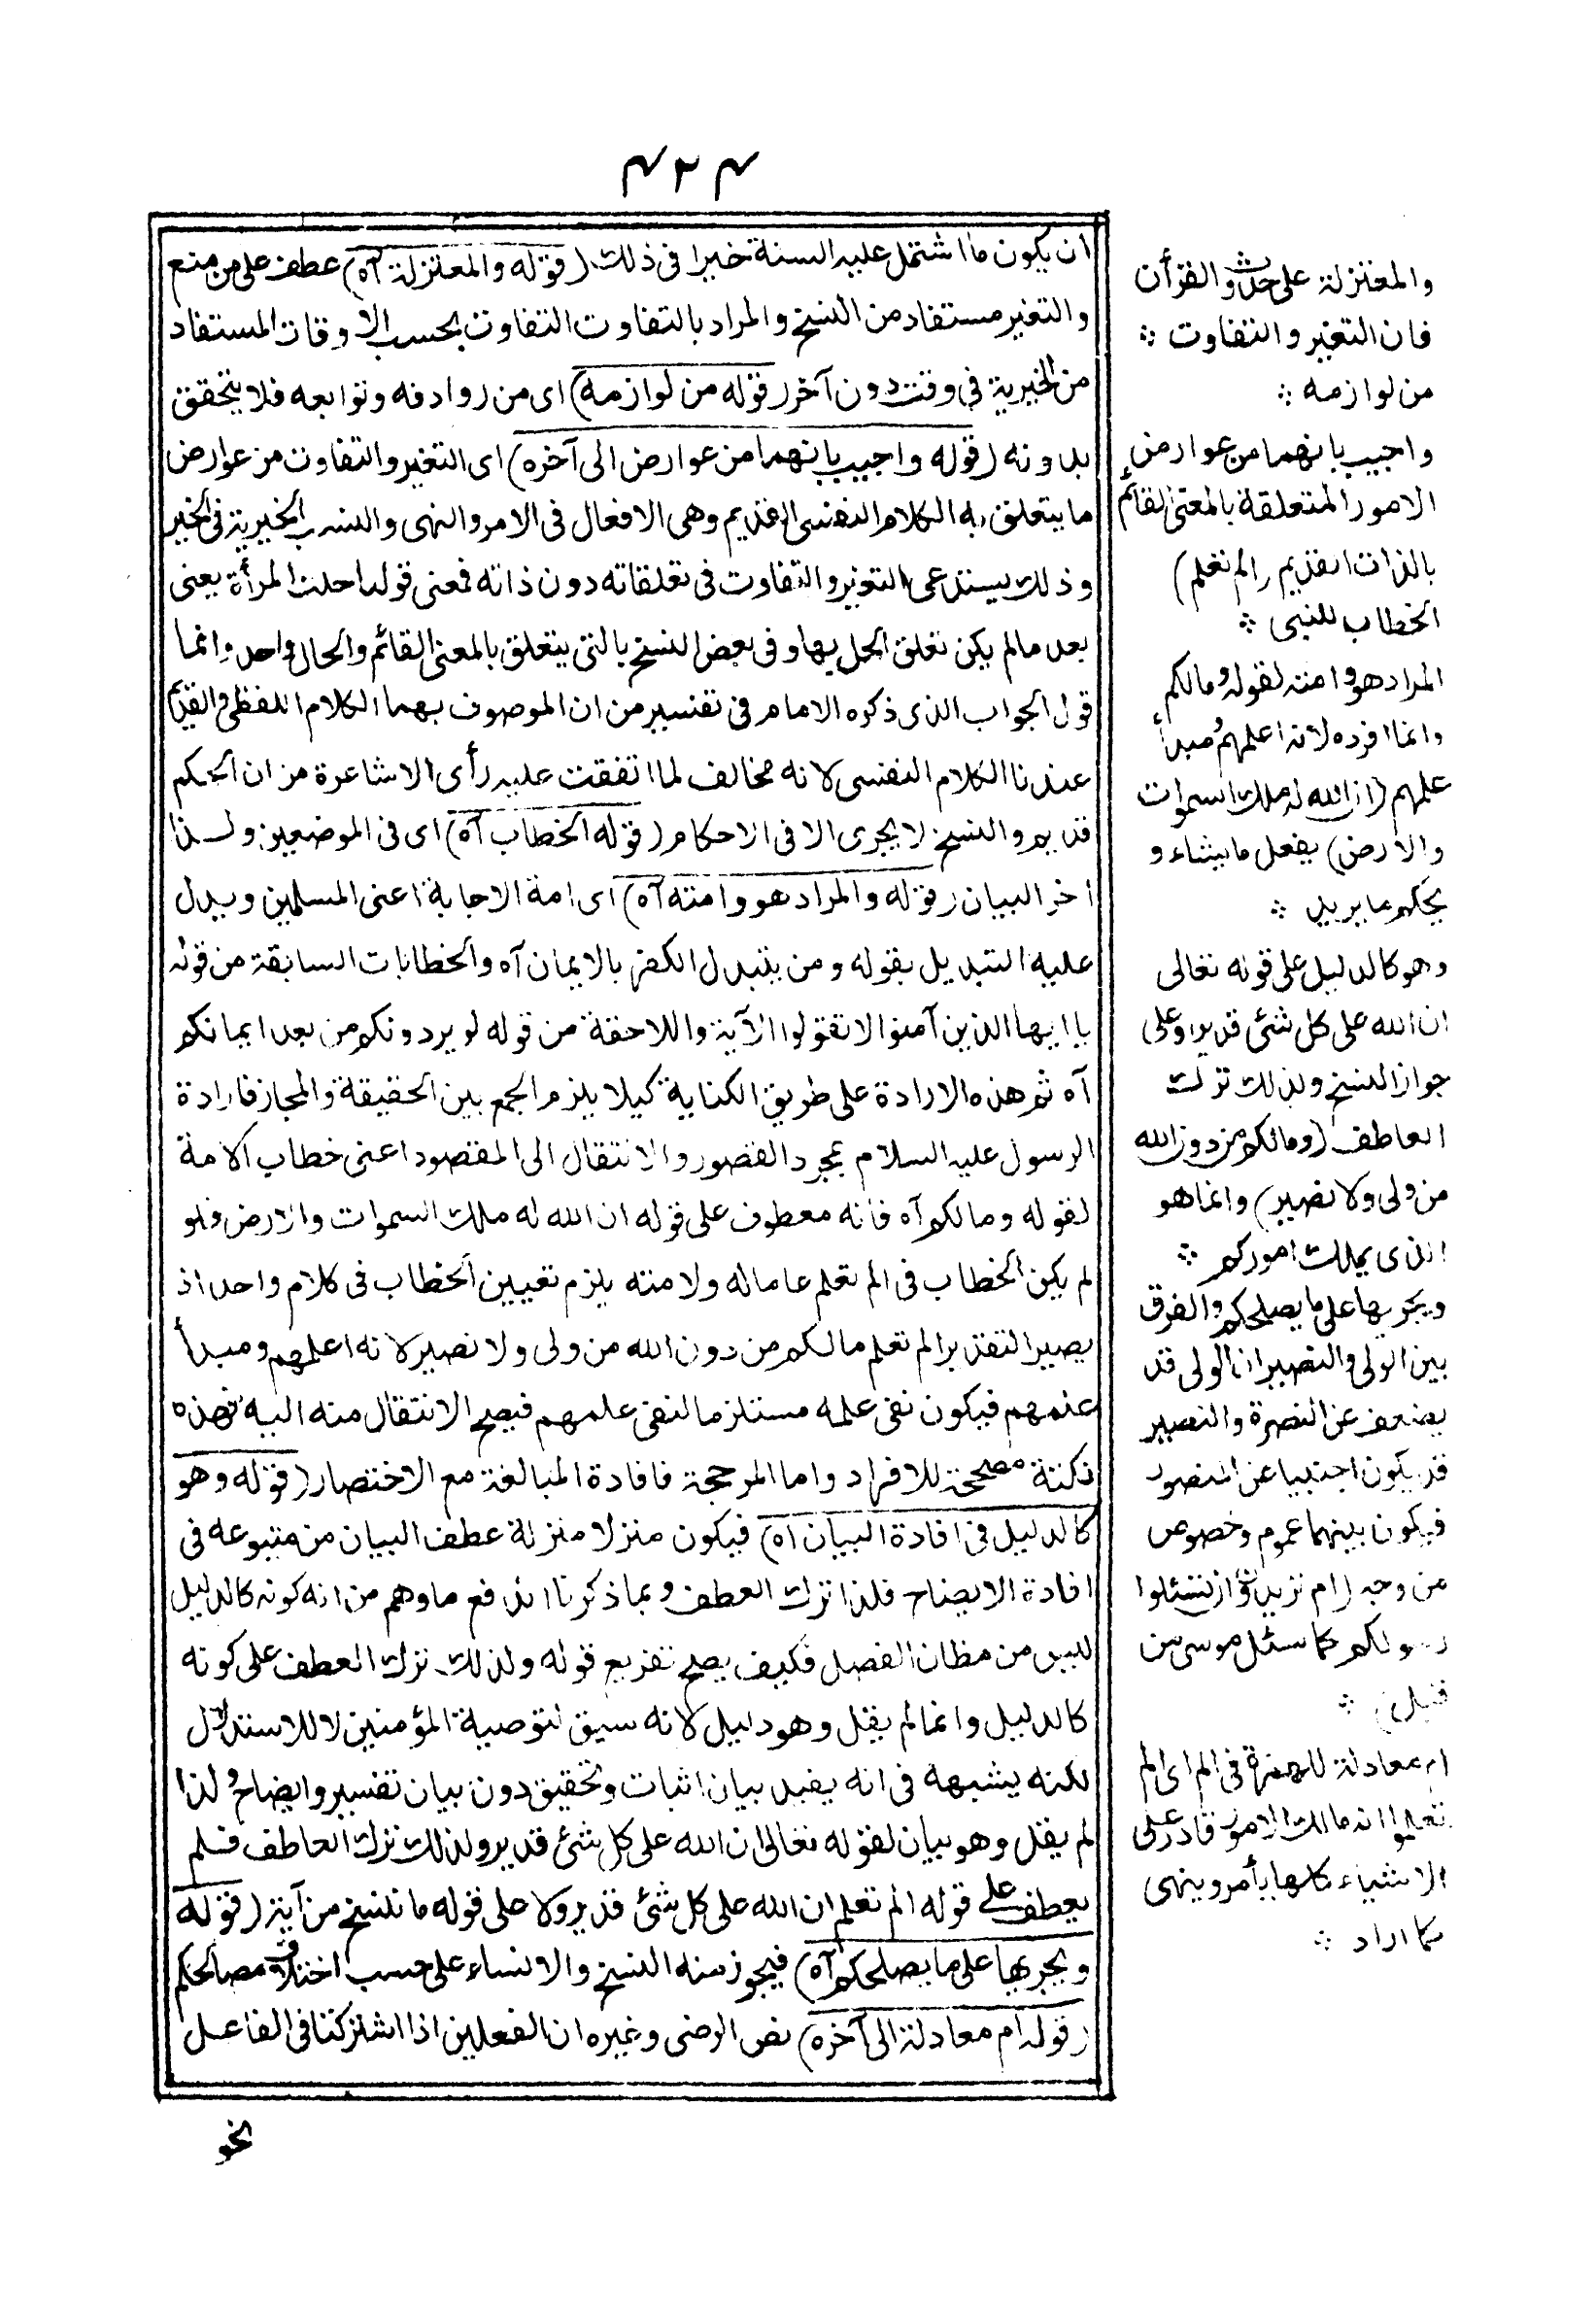 ٤٢٤
ان يكون ما اشتمل عليه السنة خيرا فى ذلك (قوله والمعتزلة آه) عطف على من منع
والتغير مستفاد من النسخ والمراد بالتفاوت التفاوت بحسب الاوقات المستفاد
من الخيرية فى وقت دون آخر (قوله من لوازمه) اى من روادفه وتوابعه فلا يتحقق
بدونه (قوله واجيب بانهما من عوارض الى آخره) اى التغير والتفاوت من عوارض
ما يتعلق به الكلام النفسى القديم وهى الافعال فى الامر والنهى والنسب الخيرية فى الخبر
وذلك يستدعى التغير والتفاوت فى تعلقاته دون ذاته فمعنى قولنا حلت المرأة يعنى
بعد مالم يكن تعلق الحل بها وفى بعض النسخ بالتى يتعلق بالمعنى القائم والحال واحد وانما
قول الجواب الذى ذكره الامام فى تفسير من ان الموصوف بهما الكلام اللفظى والقديم
عندنا الكلام النفسى لانه مخالف لما اتفقت عليه رأى الاشاعرة من ان الحكم
قديم والنسخ لا يجرى الا فى الاحكام (قوله الخطاب آه) اى فى الموضعين ولذا
اخر البيان (قوله والمراد هو وامته آه) اى امة الاجابة اعنى المسلمين ويدل
عليه التبديل بقوله ومن يتبدل الكفر بالايمان آه والخطابات السابقة من قوله
يا ايها الذين آمنوا لا تقولوا الآية واللاحقة من قوله لو يردونكم من بعد ايمانكم
آه ثم هذه الارادة على طريق الكناية كيلا يلزم الجمع بين الحقيقة والمجاز فارادة
الرسول عليه السلام بمجرد القصور والانتقال الى المقصود اعنى خطاب الامة
لقوله ومالكم آه فانه معطوف على قوله ان الله له ملك السموات والارض فلو
لم يكن الخطاب فى الم تعلم عاما له ولامته يلزم تعيين الخطاب فى كلام واحد اذ
يصير التقدير الم تعلم مالكم من دون الله من ولى ولا نصير لانه اعلمهم ومبدأ
علمهم فيكون نفى علمه مستلزما لنفى علمهم فيصح الانتقال منه اليه فهذه
نكتة مصححة للافراد واما المرجحة فافادة المبالغة مع الاختصار (قوله وهو
كالدليل فى افادة البيان آه) فيكون منزلا منزلة عطف البيان من متبوعه فى
افادة الايضاح فلذا ترك العطف وبما ذكرنا اندفع ما وهم من انه كونه كالدليل
ليس من مظان الفصل فكيف يصلح تفريع قوله ولذلك ترك العطف على كونه
كالدليل وانما لم يقل وهو دليل لانه سيق لتوصية المؤمنين لا للاستدلال
لكنه يشبهه فى انه يفيد بيان اثبات وتحقيق دون بيان تفسير وايضاح ولذا
لم يقل وهو بيان لقوله تعالى ان الله على كل شئ قدير ولذلك ترك العاطف فلم
يعطف على قوله الم تعلم ان الله على كل شئ قدير ولا على قوله ما ننسخ من آية (قوله
ويجريها على ما يصلحكم آه) فيجوز منه النسخ والانساء على حسب اختلاف مصالحكم
(قوله ام معادلة الى آخره) نص الرضى وغيره ان الفعلين اذا اشتركتا فى الفاعل
نحو
والمعتزلة على حدوث القرأن
فان التغير والتفاوت
من لوازمه
واجيب بانهما من عوارض
الامور المتعلقة بالمعنى القائم
بالذات القديم (الم تعلم)
الخطاب للنبى
المراد هو وامته لقوله ومالكم
وانما افرده لانه اعلمهم ومبدأ
علمهم (ان الله له ملك السموات
والارض) يفعل ما يشاء و
يحكم ما يريد
وهو كالدليل على قوله تعالى
ان الله على كل شئ قدير او على
جواز النسخ ولذلك ترك
العاطف (ومالكم من دون الله
من ولى ولا نصير) وانما هو
الذى يملك اموركم
ويجريها على ما يصلحكم والفرق
بين الولى والنصير ان الولى قد
يضعف عن النصرة والنصير
قد يكون اجنبيا عن المنصور
فيكون بينهما عموم وخصوص
من وجه (ام تريدون ان تسئلوا
رسولكم كما سئل موسى من
قبل)
ام معادلة للهمزة فى الم اى الم
تعلموا انه مالك الامور قادر على
الاشياء كلها يأمر وينهى
كما اراد